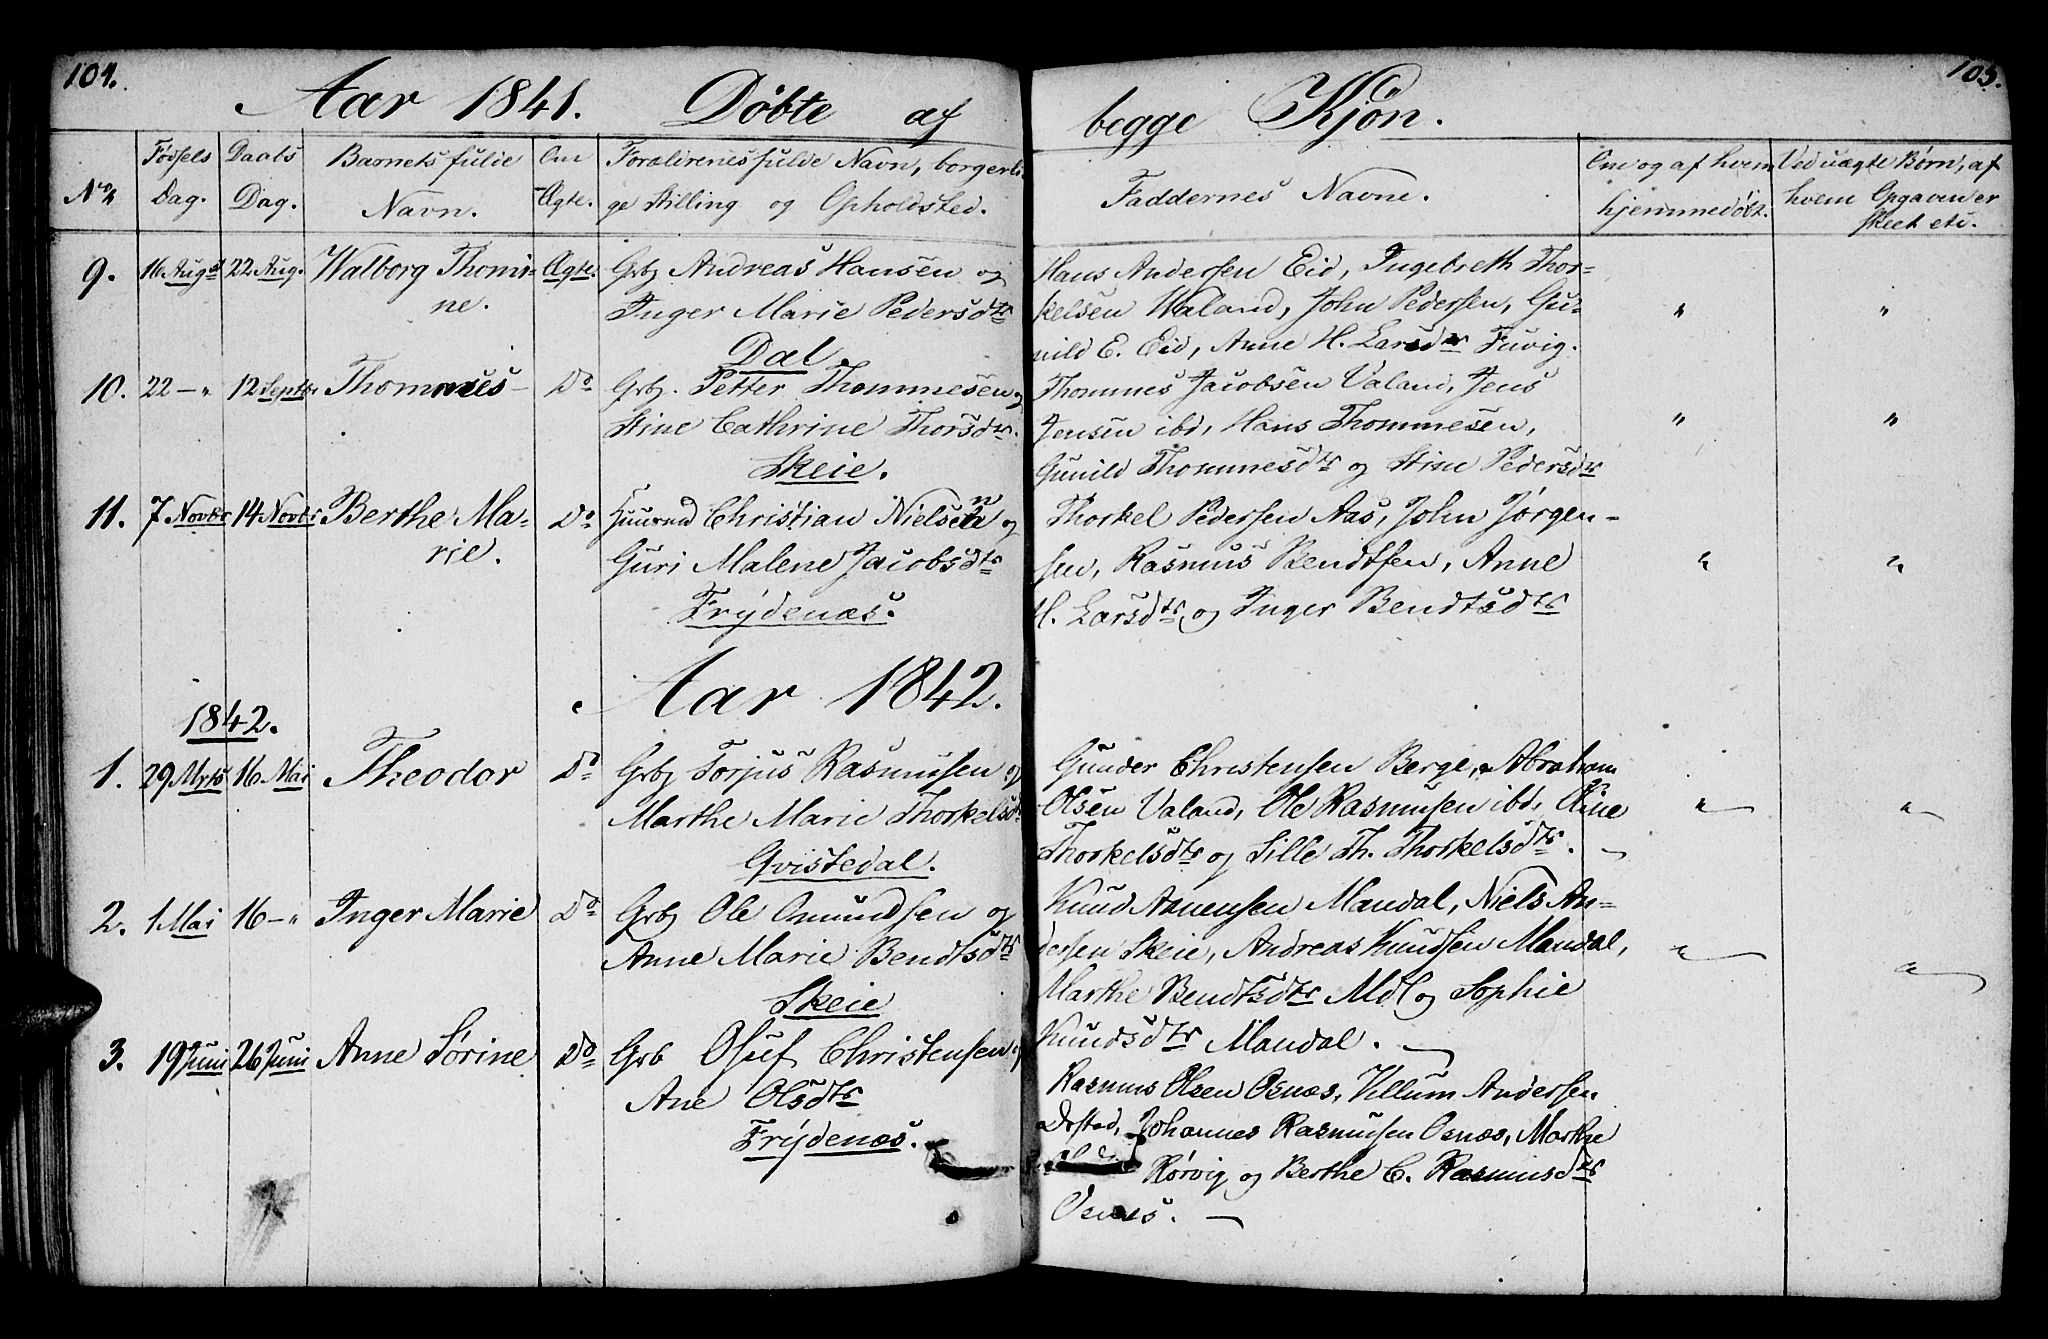 104.
105.
Aar 1841. Døbte af begge Kjön.
No
Fødsels Dag.
Daabs Dag.
Barnets fulde Navn.
Om Ægte.
Forældrenes fulde Navn, borgerli-
ge Stilling og Opholdsted.
Faddernes Navne.
Om og af hvem
hjemmedøbt.
Ved uægte Børn, af
hvem Opgaven er
skeet etc.
9. 16 Augst 22 Aug. Walborg Thomi- Ægte. Grbg Andreas Hansen og
ne. Inger Marie Pedersdtr
Dal
Hans Andersen Eid, Ingebreth Thor-
kelsen Waland, John Pedersen, Gu-
nild E. Eid, Anne H. Larsdtr Fuvig.
10. 22 – " 12 Septbr Thommes Do Grbg. Petter Thommesen og
Stine Cathrine Thorsdtr.
Skeie.
Thommes Jacobsen Valand, Jens
Jensen ibd, Hans Thommesen,
Gunild Thommesdtr og Stine Pedersdtr
11. 7 Novbr 14 Novbr Berthe Ma- Do Huusmd Christian Nielsen og
rie. Guri Malene Jacobsdtr
Frÿdenæs.
Thorkel Pedersen Aas, John Jørgen-
sen, Rasmus Bendtsen, Anne
H. Larsdtr og Inger Bendtsdtr
Aar 1842.
1842.
1. 29 Mrts 16 Mai Theodor Do Grbg Torjus Rasmusen og
Marthe Marie Thorkelsdtr
Gvistedal.
Gunder Christensen Berge, Abraham
Olsen Valand, Ole Rasmusen ibd, Oline
Thorkelsdtr og Sille Th. Thorkelsdtr.
2. 1 Mai 16 – " Inger Marie Do Grbg Ole Omundsen og
Anne Marie Bendtsdtr
Skeie
Knud Asnensen Mandal, Niels An-
dersen Skeie, Andreas Knudsen Mandal,
Marthe Bendtsdtr Mdl og Sophie
Knudsdtr Mandal.
3. 19 Juni 26 Juni Anne Sørine Do Grb Osuf Christensen og
Ane Olsdtr
Frÿdenæs.
Rasmus Olsen Osnæs, Villum Andersen
Johannes Rasmusen Osnæs, Marthe
Rörvig og Berthe C. Rasmusdtr
Osnæs.